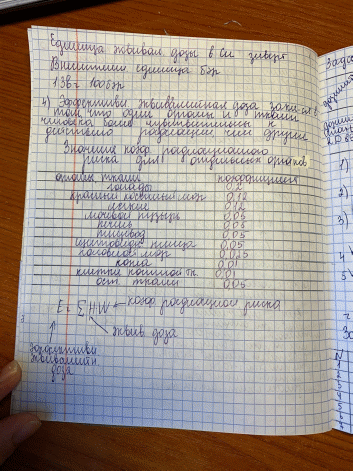 Единица эквивал дозы в Си зиверт
Внесистемн единица бэр
1 Зв = 100 бэр
4) Эффективн эквивалентная доза закл ся в
том что одни органы и ткани
человека более чувствительны к
действию радиации чем другие
Значения коэф радиационного
риска для отдельных органов
органы ткани коэффициент
гонады 0,2
красный костный мозг 0,12
легкие 0,12
мочевой пузырь 0,05
печень 0,05
пищевод 0,05
щитовидная железа 0,05
головной мозг 0,025
кожа 0,01
клетки костной тк 0,01
ост ткани 0,05
E = Σ HW коэф радиацион риска
эквив доза
эффективн
эквивалентн
доза